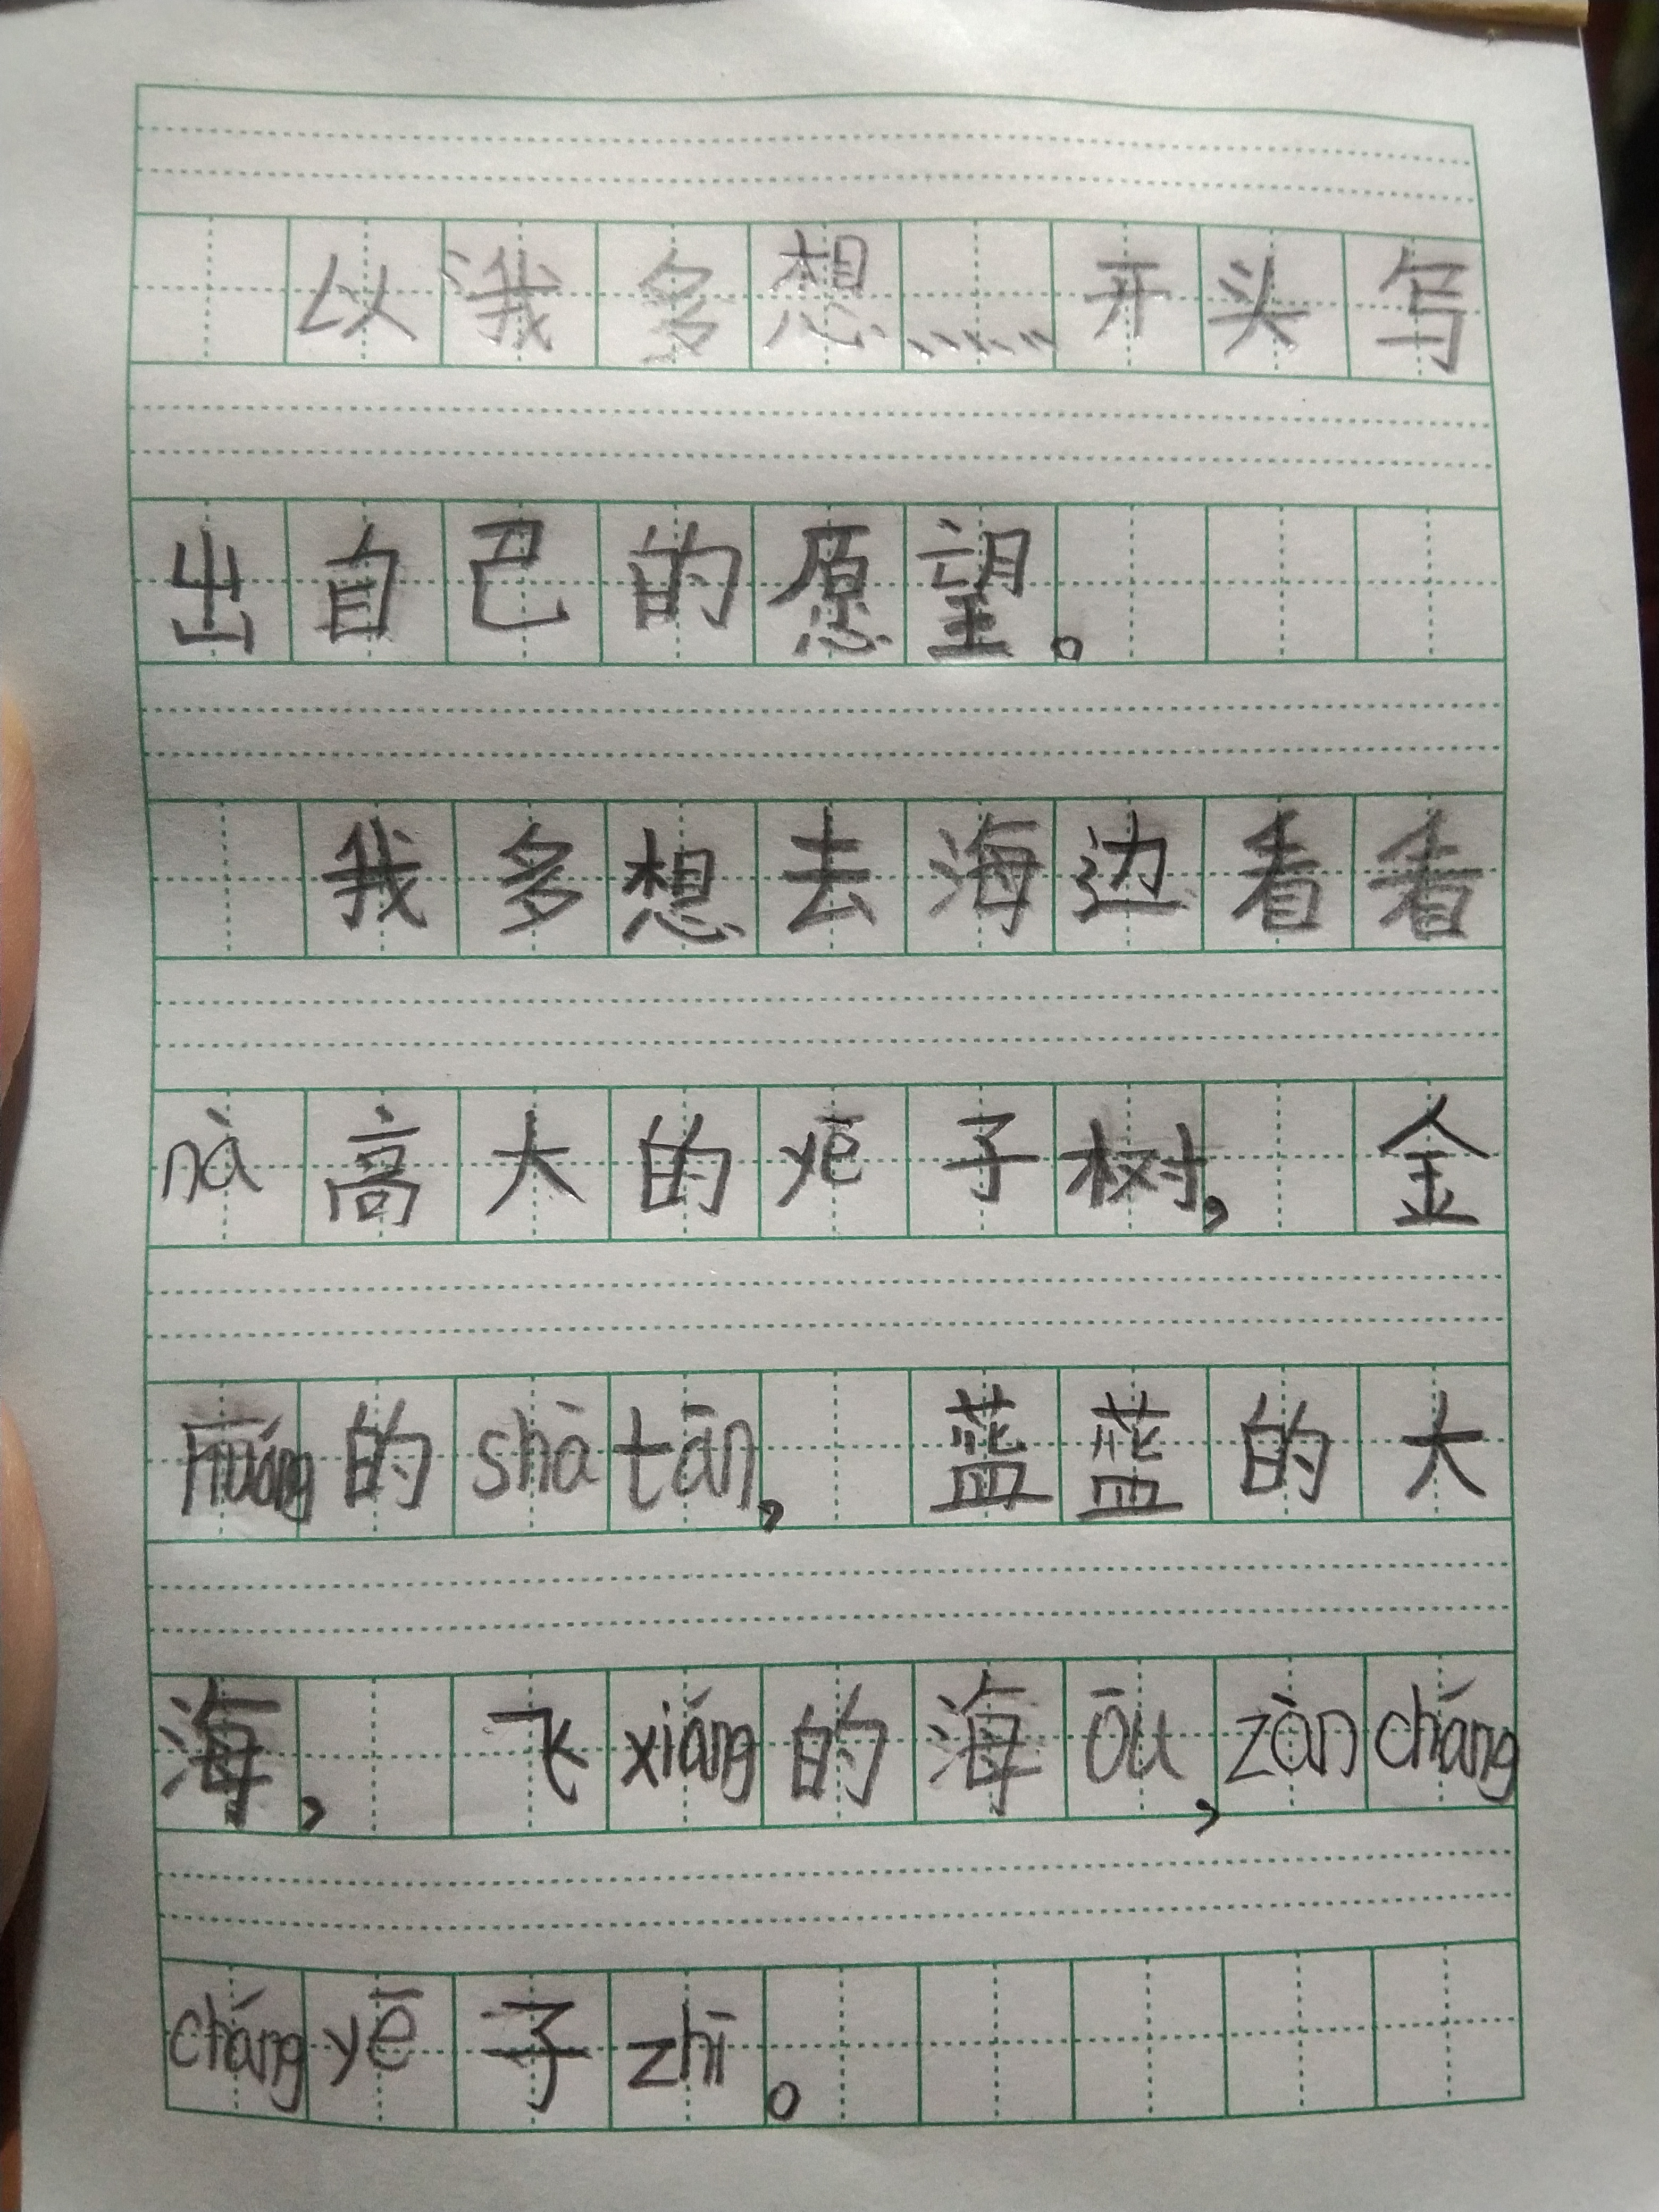 以“我多想……”开头写
出自己的愿望。
我多想去海边看看
nà高大的yē子树，金
huáng的shàtān，蓝蓝的大
海，飞xiáng的海ōu，zàncháng
chángyē子zhī。